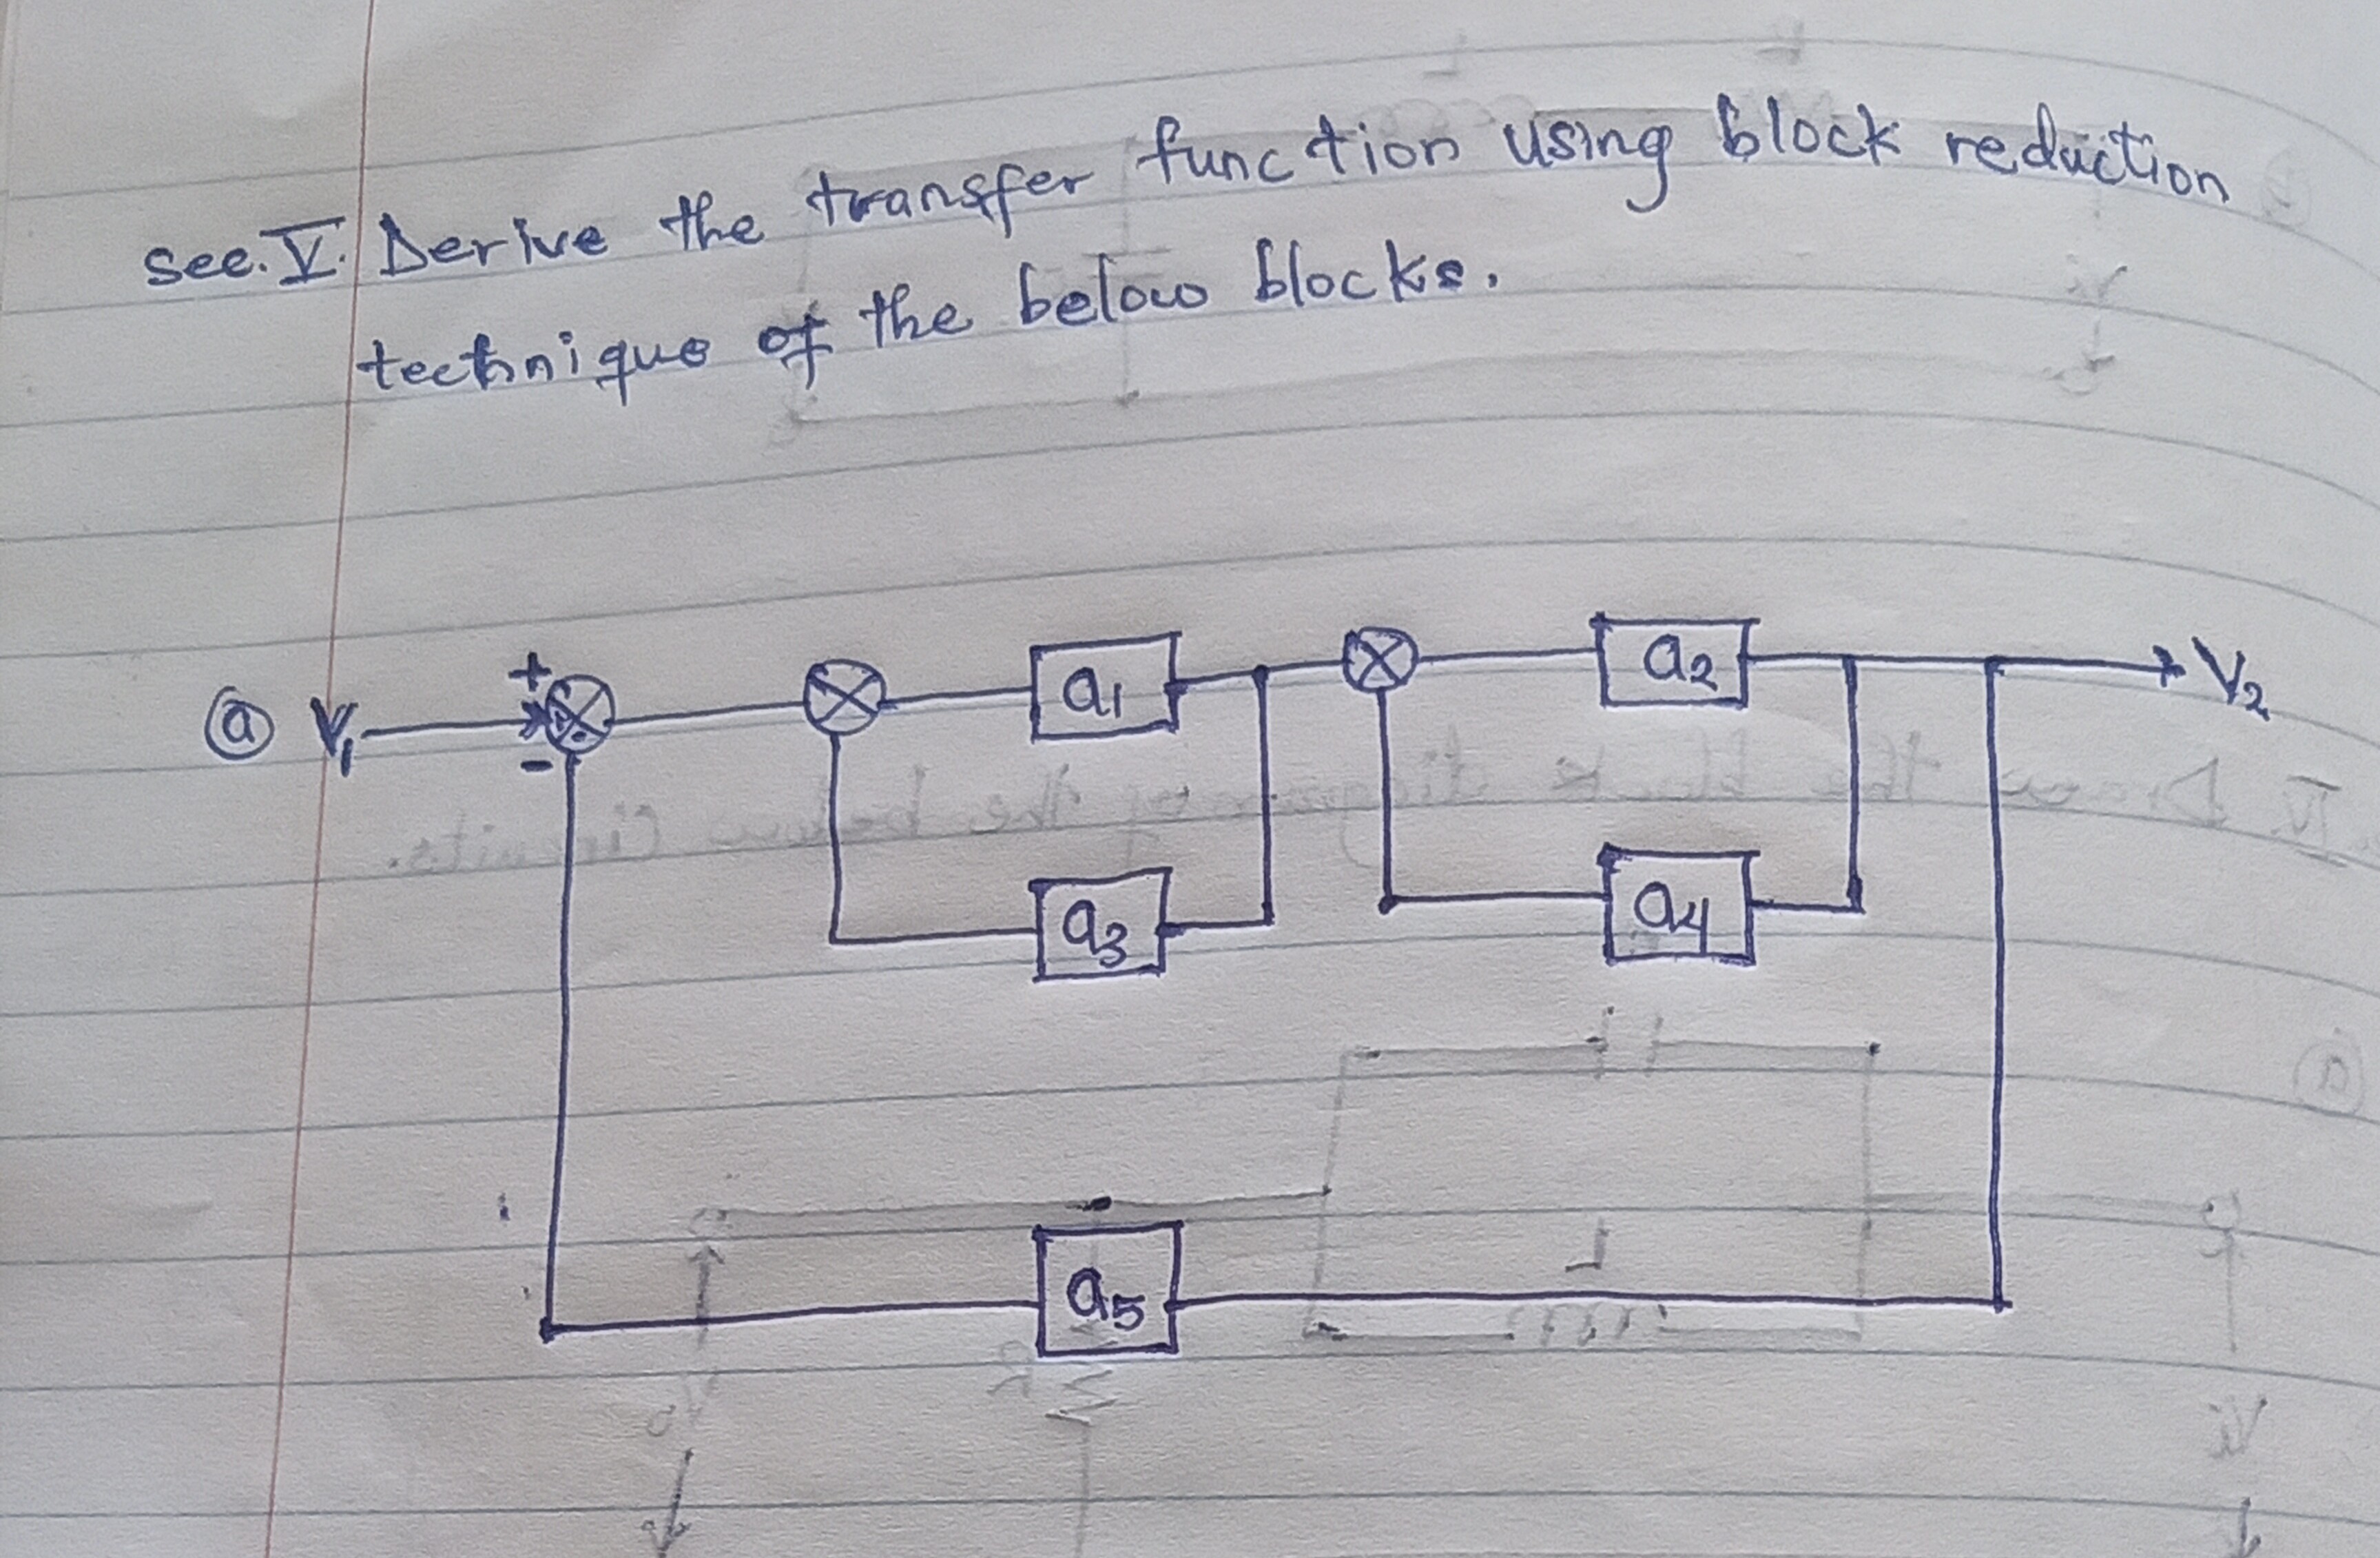 see. V. Derive the transfer function using block reduction
technique of the below blocks.
ⓐ V₁ + - a₁ a₂ V₂
a₃ a₄
a₅